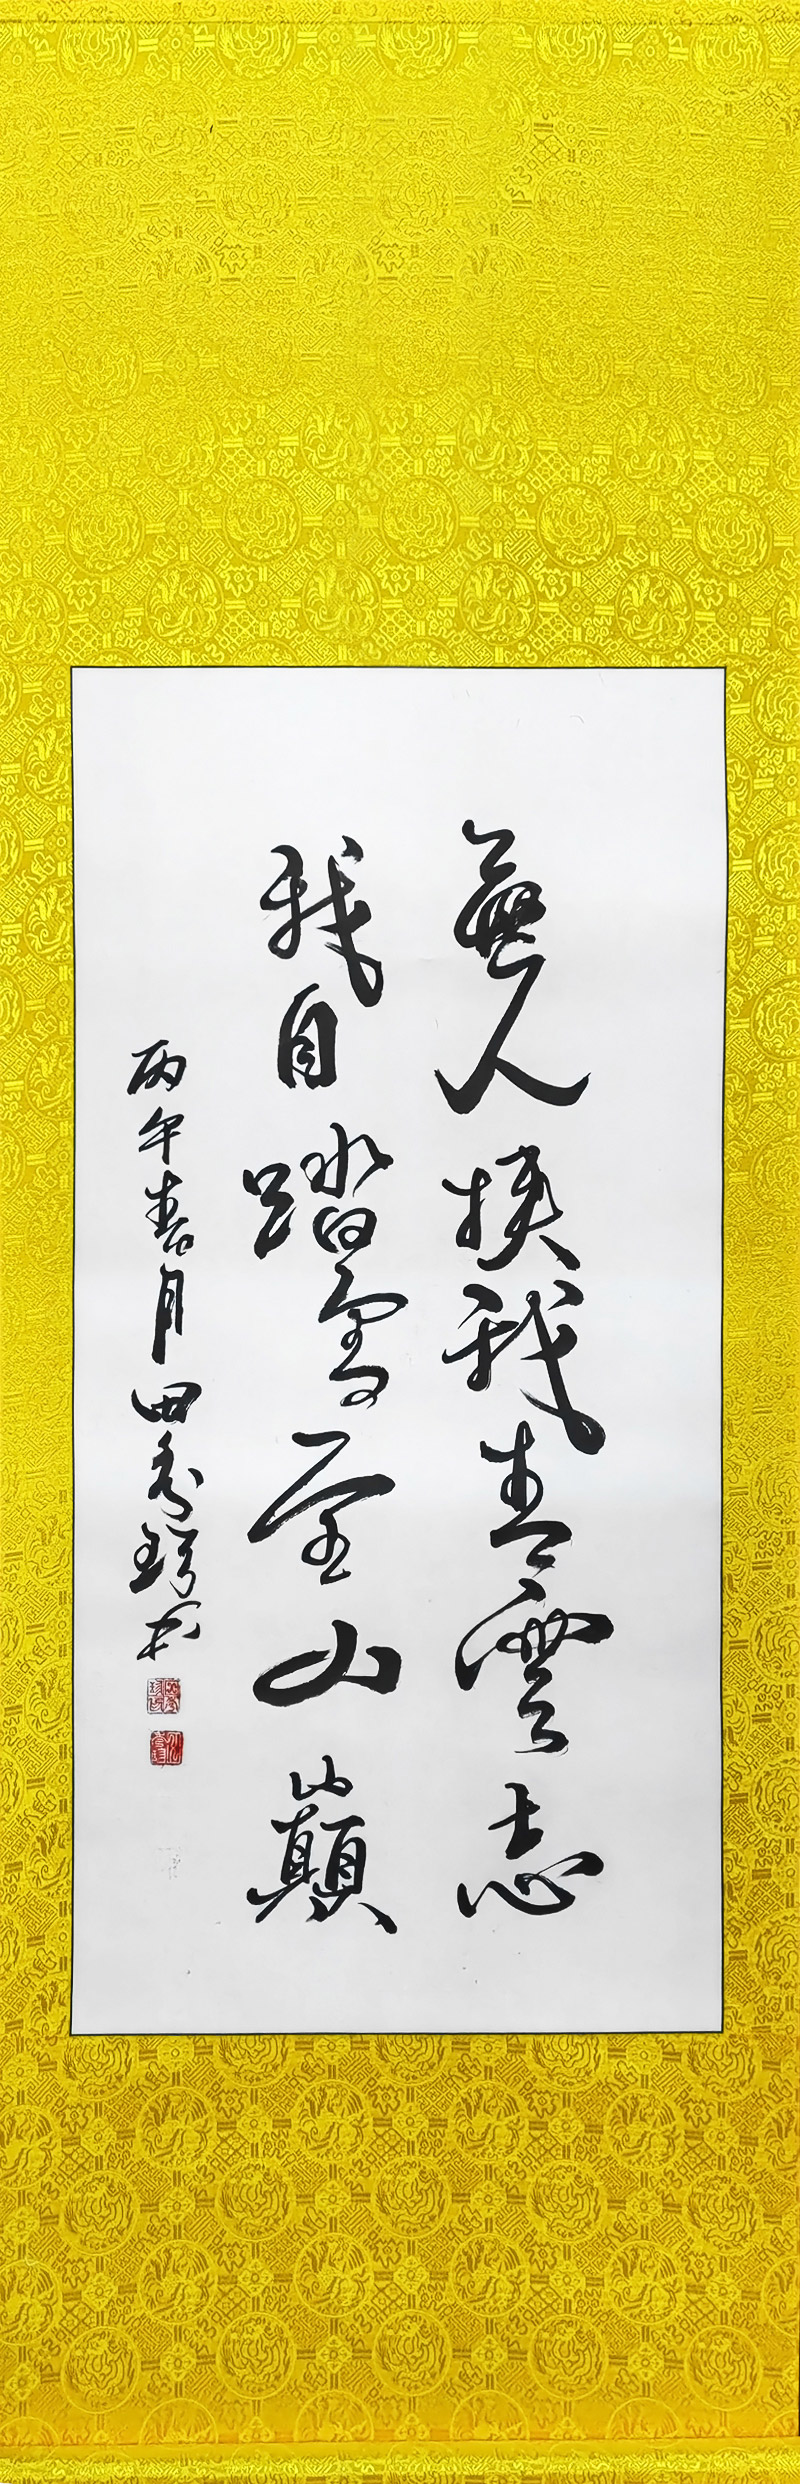 無人扶我青雲志
我自踏雪至山巔
丙午春月田秀珍书